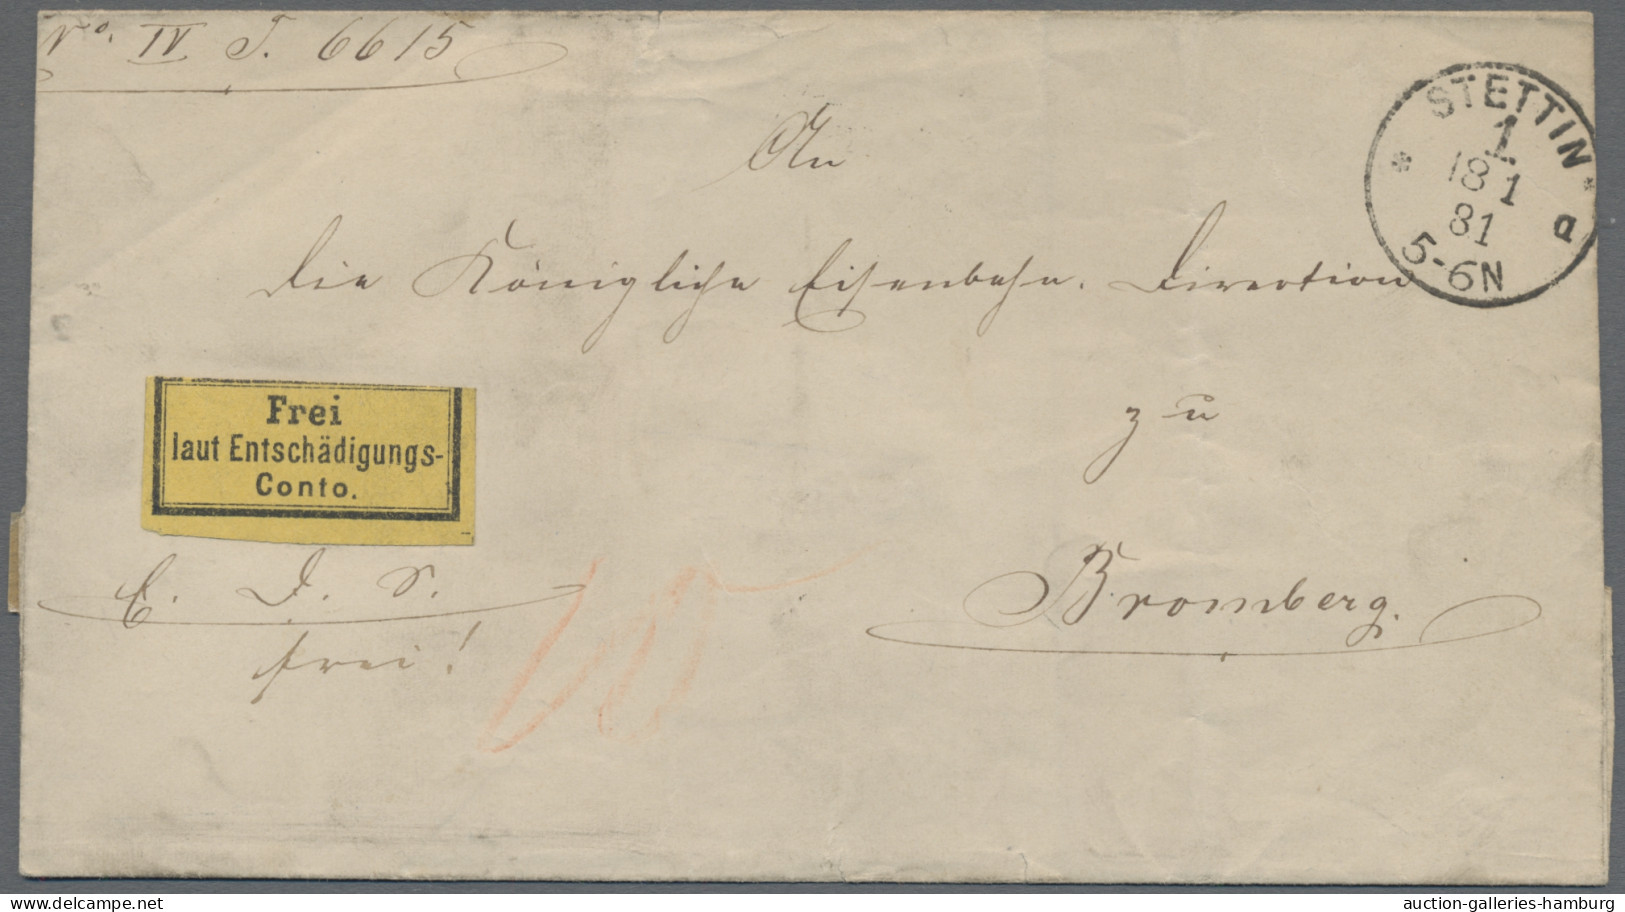 No. IV J. 6615
STETTIN
1
18 1
81
5-6N
a
An
die Königliche Eisenbahn-Direction
zu
Bromberg.
Frei
laut Entschädigungs-
Conto.
E. D. S.
frei!
delcampe.net
auction-galleries-hamburg